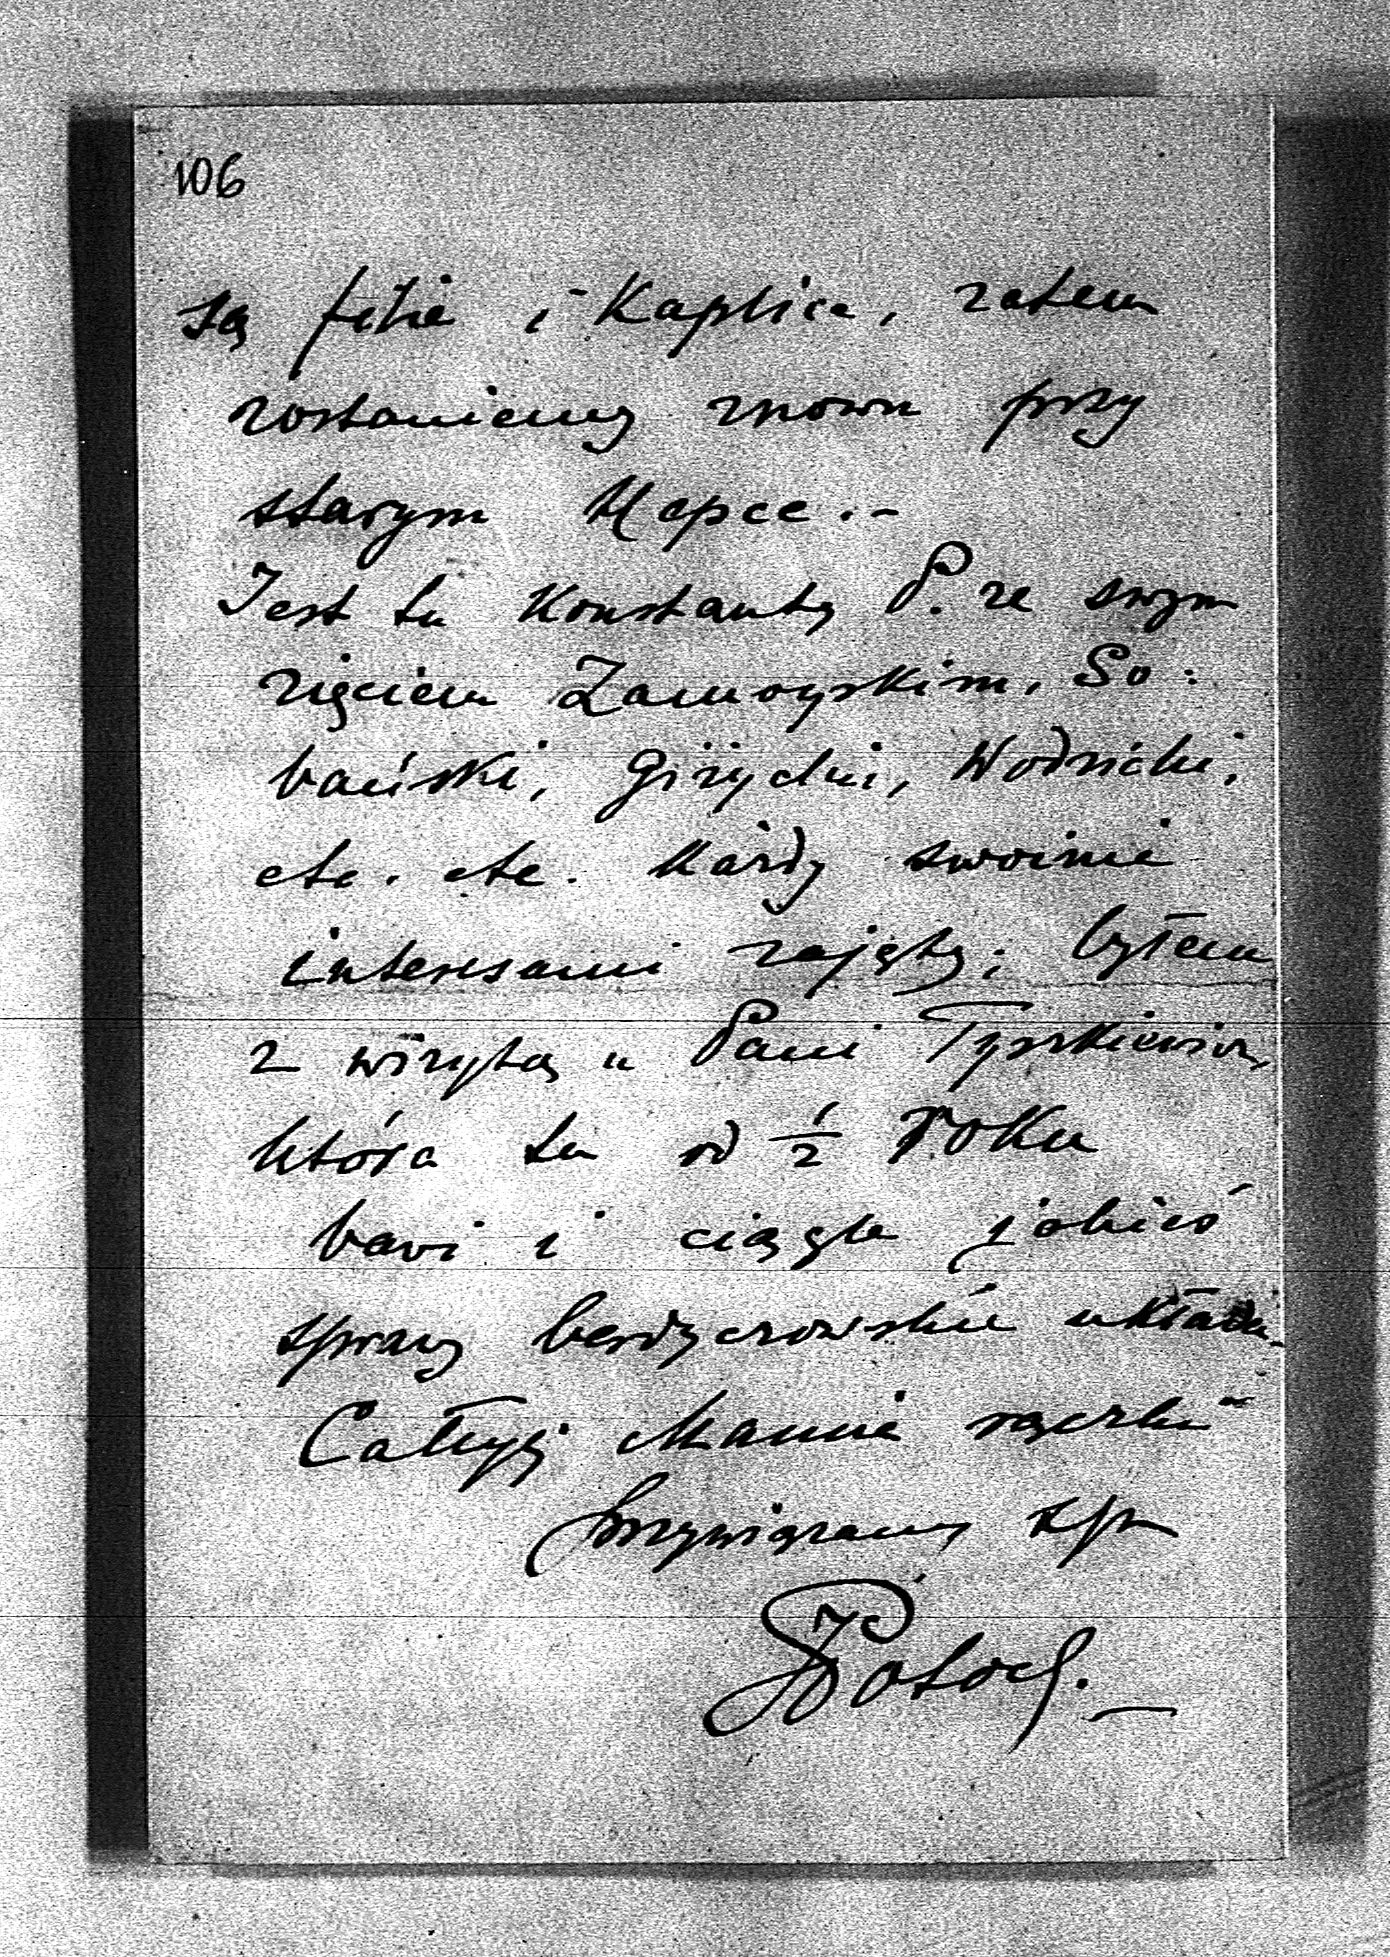 106
są filie i Kaplice, zatem
zostaniemy znowu przy
starym Klepce.-
Jest tu Konstanty P. ze swym
zięciem Zamoyskim, So:
bański, Giżycki, Wodzicki,
etc. etc. Każdy swoimi
interesami zajęty; byłem
z wizytą u Pani Tyszkiewicz,
która tu od ½ roku
bawi i ciągle jakieś
sprawy berdyczowskie układa.
Całuję Mamie rączki
przywiązany syn
JPotocki.